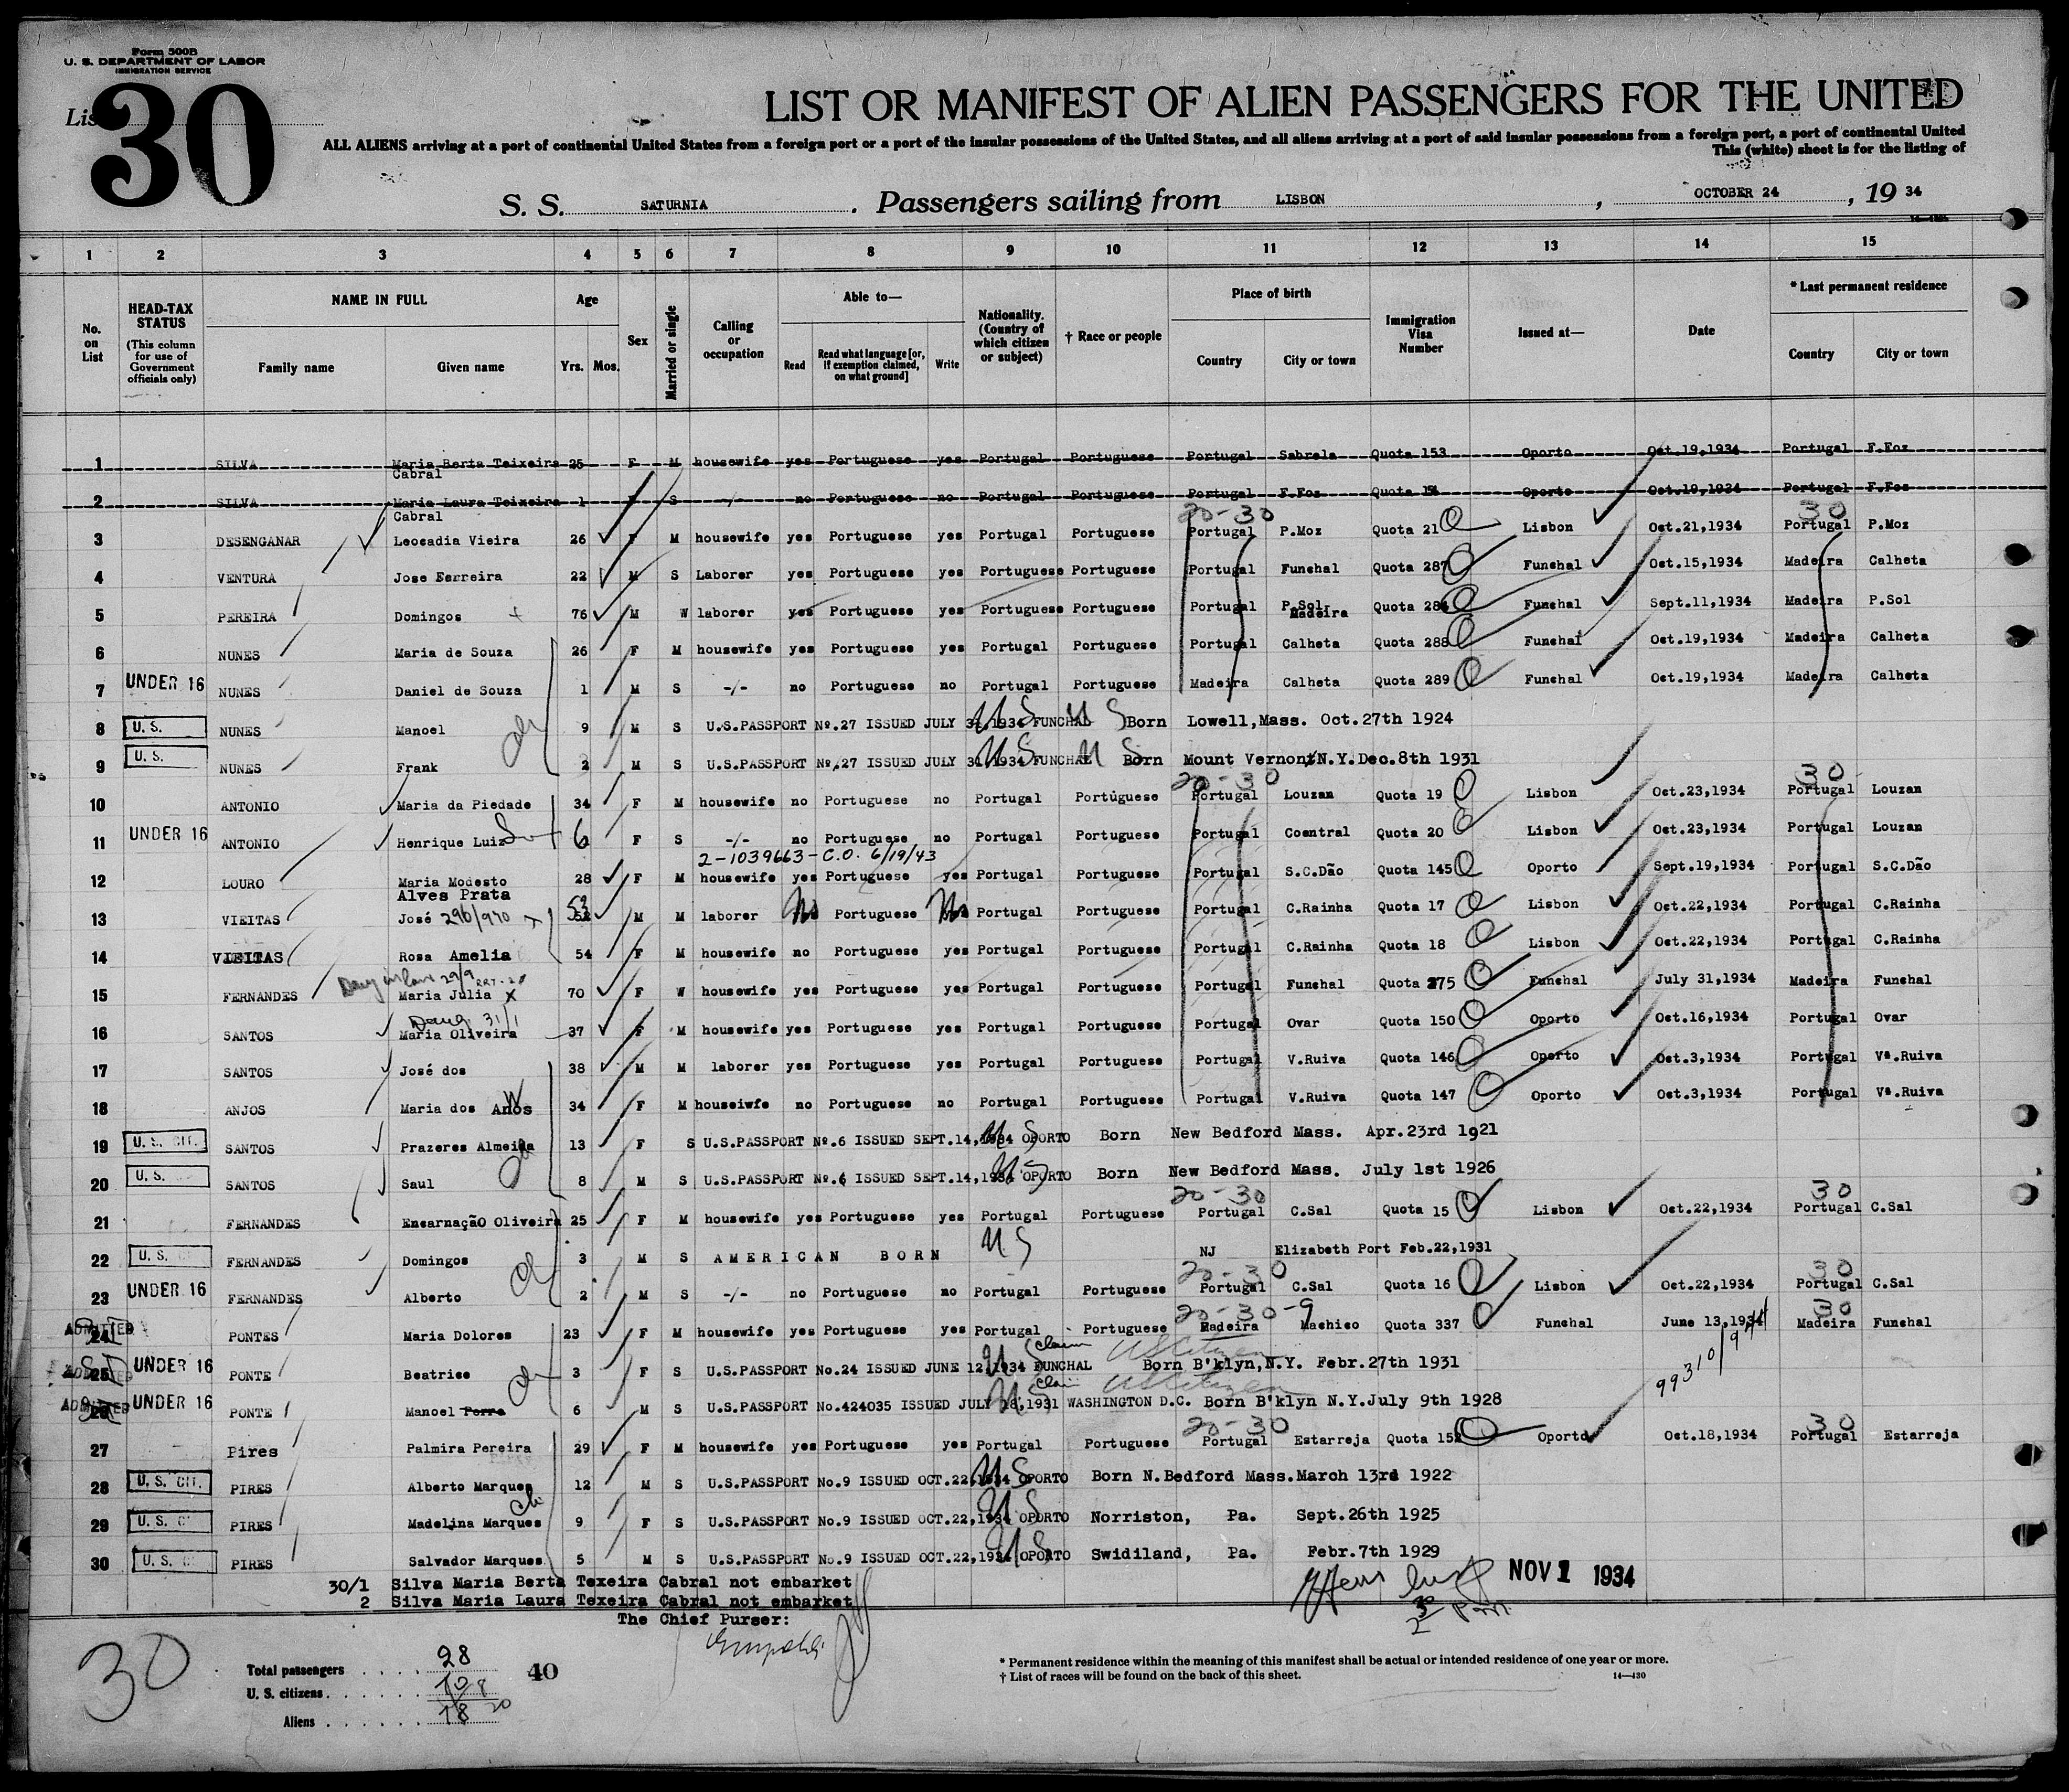 Form 500B
U. S. DEPARTMENT OF LABOR
IMMIGRATION SERVICE
List 30
LIST OR MANIFEST OF ALIEN PASSENGERS FOR THE UNITED
ALL ALIENS arriving at a port of continental United States from a foreign port or a port of the insular possessions of the United States, and all aliens arriving at a port of said insular possessions from a foreign port, a port of continental United
This (white) sheet is for the listing of
S. S. SATURNIA. Passengers sailing from LISBON, OCTOBER 24, 19 34
1 2 3 4 5 6 7 8 9 10 11 12 13 14 15
No. on List
HEAD-TAX STATUS (This column for use of Government officials only)
NAME IN FULL Family name Given name
Age Yrs. Mos.
Sex
Married or single
Calling or occupation
Able to— Read Read what language [or, if exemption claimed, on what ground] Write
Nationality. (Country of which citizen or subject)
† Race or people
Place of birth Country City or town
Immigration Visa Number
Issued at—
Date
* Last permanent residence Country City or town
1 SILVA Maria Berta Teixeira Cabral 25 F M housewife yes Portuguese yes Portugal Portuguese Portugal Sabrela Quota 153 Oporto Oct.19,1934 Portugal F.Foz
2 SILVA Maria Laura Teixeira Cabral 1 F S -/- no Portuguese no Portugal Portuguese Portugal F.Foz Quota Oporto Oct.19,1934 Portugal F.Foz
20-30 30
3 DESENGANAR Leocadia Vieira 26 F M housewife yes Portuguese yes Portugal Portuguese Portugal P.Moz Quota 21 Lisbon Oct.21,1934 Portugal P.Moz
4 VENTURA Jose Ferreira 22 M S Laborer yes Portuguese yes Portuguese Portuguese Portugal Funchal Quota 287 Funchal Oct.15,1934 Madeira Calheta
5 PEREIRA Domingos 76 M W laborer yes Portuguese yes Portuguese Portuguese Portugal P.Sol Madeira Quota Funchal Sept.11,1934 Madeira P.Sol
6 NUNES Maria de Souza 26 F M housewife yes Portuguese yes Portugal Portuguese Portugal Calheta Quota 288 Funchal Oct.19,1934 Madeira Calheta
7 UNDER 16 NUNES Daniel de Souza 1 M S -/- no Portuguese no Portugal Portuguese Madeira Calheta Quota 289 Funchal Oct.19,1934 Madeira Calheta
8 U. S. NUNES Manoel 9 M S U.S.PASSPORT No.27 ISSUED JULY 31,1934 FUNCHAL US Born Lowell,Mass. Oct.27th 1924
9 U. S. NUNES Frank 2 M S U.S.PASSPORT No.27 ISSUED JULY 31,1934 FUNCHAL US Born Mount Vernon N.Y.Dec.8th 1931
20-30 30
10 ANTONIO Maria da Piedade 34 F M housewife no Portuguese no Portugal Portuguese Portugal Louzan Quota 19 Lisbon Oct.23,1934 Portugal Louzan
11 UNDER 16 ANTONIO Henrique Luiz 6 F S -/- no Portuguese no Portugal Portuguese Portugal Coentral Quota 20 Lisbon Oct.23,1934 Portugal Louzan
2-1039663-C.O. 6/19/43
12 LOURO Maria Modesto Alves Prata 28 F M housewife yes Portuguese yes Portugal Portuguese Portugal S.C.Dão Quota 145 Oporto Sept.19,1934 Portugal S.C.Dão
13 VIEITAS José 296/970 53 M M laborer No Portuguese No Portugal Portuguese Portugal C.Rainha Quota 17 Lisbon Oct.22,1934 Portugal C.Rainha
14 VIEITAS Rosa Amelia 54 F M housewife no Portuguese yes Portugal Portuguese Portugal C.Rainha Quota 18 Lisbon Oct.22,1934 Portugal C.Rainha
15 FERNANDES Maria Julia 70 F W housewife yes Portuguese yes Portugal Portuguese Portugal Funchal Quota 275 Funchal July 31,1934 Madeira Funchal
16 SANTOS Maria Oliveira 37 F M housewife yes Portuguese yes Portugal Portuguese Portugal Ovar Quota 150 Oporto Oct.16,1934 Portugal Ovar
17 SANTOS José dos 38 M M laborer yes Portuguese yes Portugal Portuguese Portugal V.Ruiva Quota 146 Oporto Oct.3,1934 Portugal Vª.Ruiva
18 ANJOS Maria dos Anos 34 F M houseiwfe no Portuguese no Portugal Portuguese Portugal V.Ruiva Quota 147 Oporto Oct.3,1934 Portugal Vª.Ruiva
19 U. S. CIT. SANTOS Prazeres Almeida 13 F S U.S.PASSPORT No.6 ISSUED SEPT.14,1934 OPORTO US Born New Bedford Mass. Apr.23rd 1921
20 U. S. SANTOS Saul 8 M S U.S.PASSPORT No.6 ISSUED SEPT.14,1934 OPORTO US Born New Bedford Mass. July 1st 1926
20-30 30
21 FERNANDES Encarnação Oliveira 25 F M housewife yes Portuguese yes Portugal Portuguese Portugal C.Sal Quota 15 Lisbon Oct.22,1934 Portugal C.Sal
22 U. S. FERNANDES Domingos 3 M S AMERICAN BORN US NJ Elizabeth Port Feb.22,1931
20-30 30
23 UNDER 16 FERNANDES Alberto 2 M S -/- no Portuguese no Portugal Portuguese Portugal C.Sal Quota 16 Lisbon Oct.22,1934 Portugal C.Sal
20-30-9 30
ADMITTED 24 PONTES Maria Dolores 23 F M housewife yes Portuguese yes Portugal Portuguese Madeira Machico Quota 337 Funchal June 13,1934 Madeira Funchal
Claim US Citizen 99310/9
ADMITTED 25 UNDER 16 PONTE Beatrice 3 F S U.S.PASSPORT No.24 ISSUED JUNE 12,1934 FUNCHAL Born B'klyn,N.Y. Febr.27th 1931
Claim US Citizen
ADMITTED 26 UNDER 16 PONTE Manoel 6 M S U.S.PASSPORT No.424035 ISSUED JULY 18,1931 WASHINGTON D.C. Born B'klyn N.Y.July 9th 1928
20-30 30
27 Pires Palmira Pereira 29 F M housewife yes Portuguese yes Portugal Portuguese Portugal Estarreja Quota 152 Oporto Oct.18,1934 Portugal Estarreja
28 U. S. CIT. PIRES Alberto Marques 12 M S U.S.PASSPORT No.9 ISSUED OCT.22,1934 OPORTO US Born N.Bedford Mass.March 13rd 1922
29 U. S. PIRES Madelina Marques 9 F S U.S.PASSPORT No.9 ISSUED OCT.22,1934 OPORTO US Norriston, Pa. Sept.26th 1925
30 U. S. PIRES Salvador Marques 5 M S U.S.PASSPORT No.9 ISSUED OCT.22,1934 OPORTO US Swidiland, Pa. Febr.7th 1929
30/1 Silva Maria Berta Texeira Cabral not embarket
NOV 1 1934
2 Silva Maria Laura Texeira Cabral not embarket
The Chief Purser:
30
Total passengers 28
40
U. S. citizens
Aliens 18 20
* Permanent residence within the meaning of this manifest shall be actual or intended residence of one year or more.
† List of races will be found on the back of this sheet.
14—430